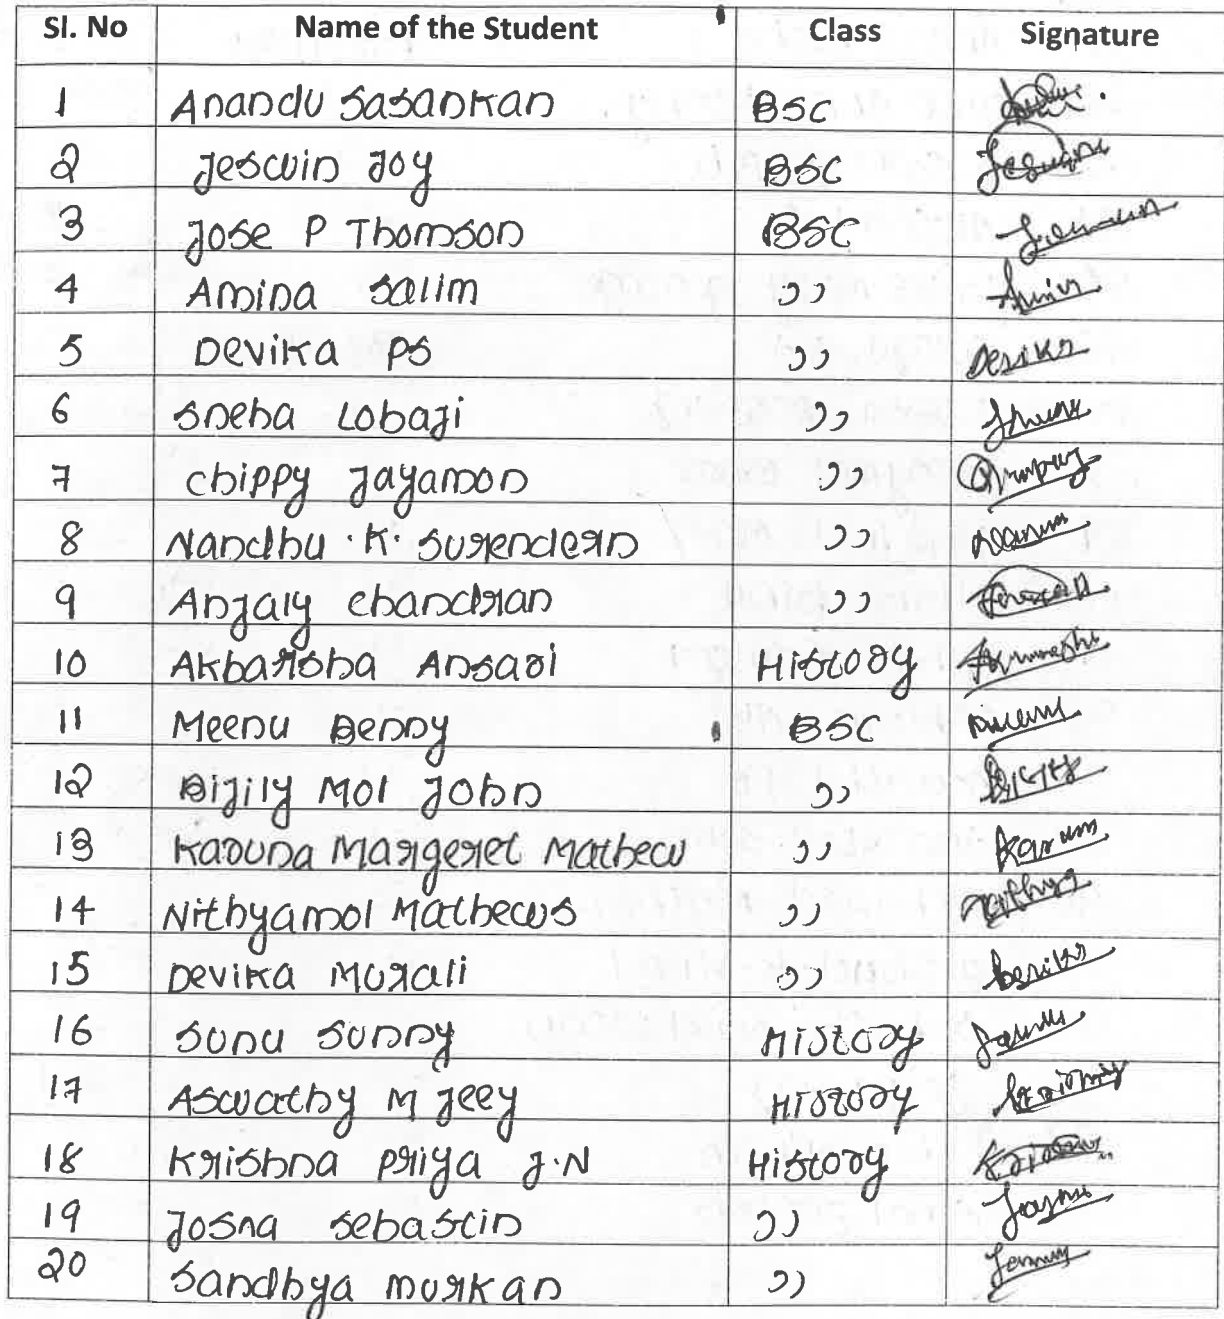 Sl. No Name of the Student Class Signature
1 Anandu Sasankan BSC
2 Jeswin Joy BSC
3 Jose P Thomson BSC
4 Amina Salim ,,
5 Devika PS ,, Devika
6 Sneha Lobaji ,,
7 Chippy Jayamon ,,
8 Nandhu . K . Surendern ,,
9 Anjaly Chandran ,,
10 Akbarsha Ansari History
11 Meenu Benny BSC
12 Bijily Mol John ,,
13 Karuna Margeret Mathew ,,
14 Nithyamol Mathews ,,
15 Devika Murali ,,
16 Sonu Sunny History
17 Aswathy M Jeey History
18 Krishna Priya J.N History
19 Josna Sebastin ,,
20 Sandhya Murkan ,,